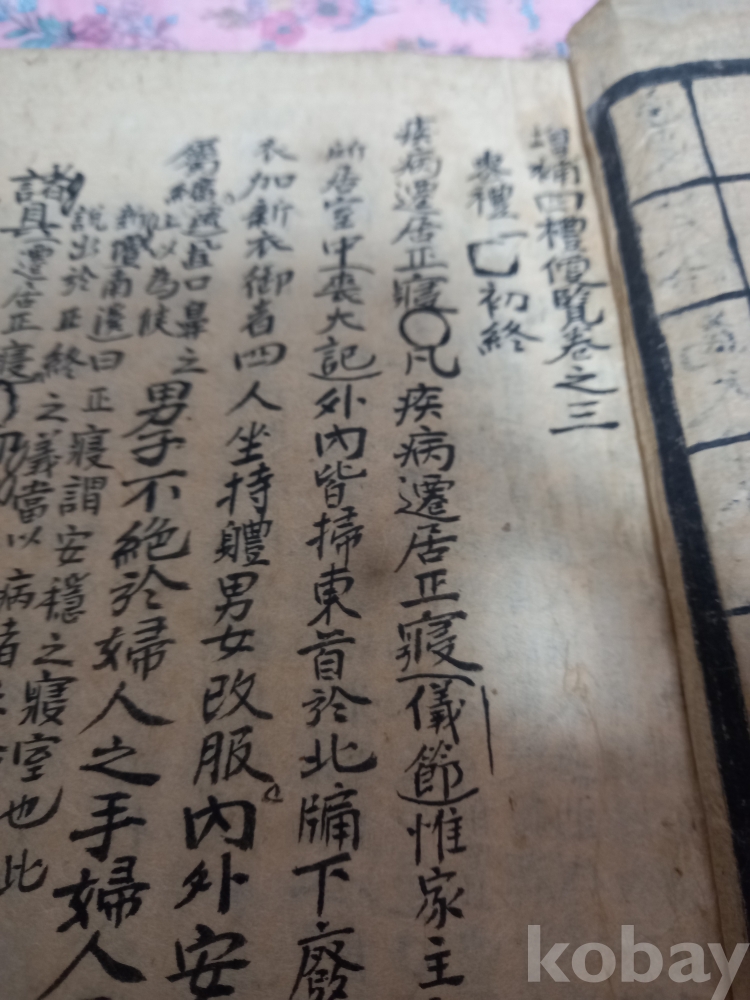 增補四禮便覽卷之三
喪禮 一 初終
疾病遷居正寢○凡疾病遷居正寢(儀節)惟家主
所居室中(喪大記)外內皆掃東首於北牖下廢
衣加新衣御者四人坐持體男女改服內外安
屬纊
置口鼻之
上以為候
男子不絕於婦人之手婦人
新
南溪曰正寢謂安穩之寢室也此
說出於正終之義當以病者
諸具(遷居正寢)
kobay